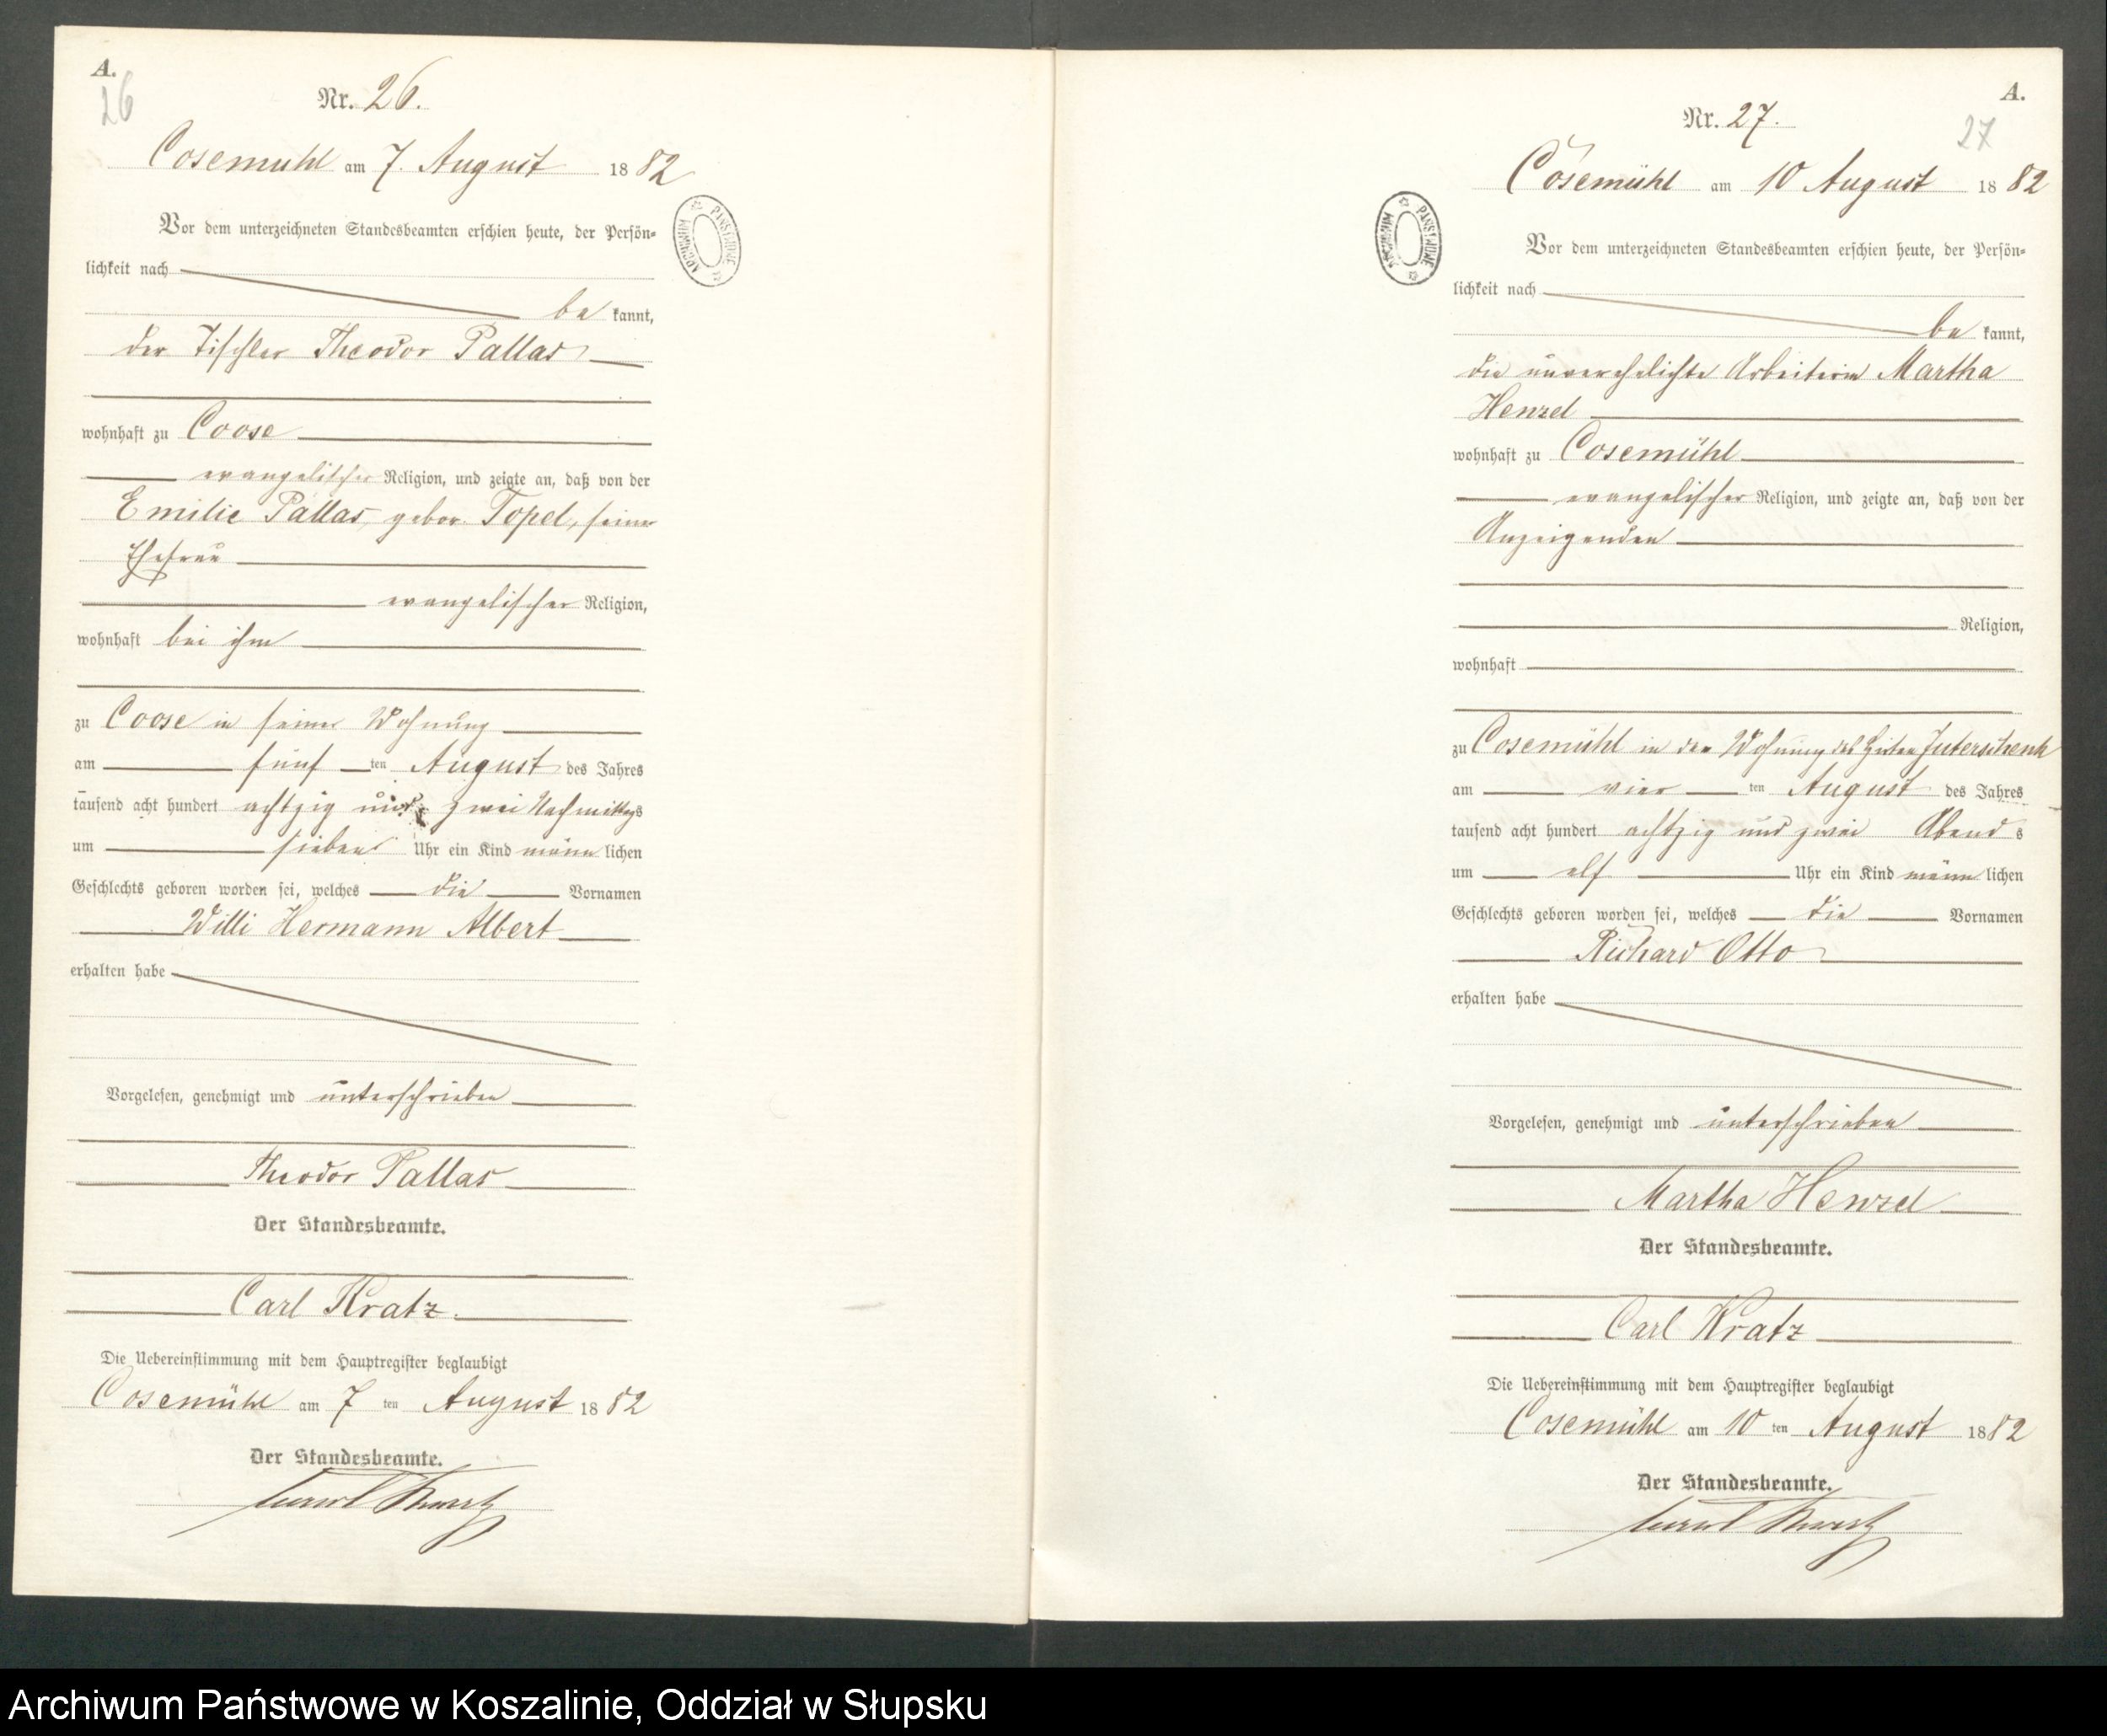 A.
26
Nr. 26.
Cosemuhl am 7. August 1882
Vor dem unterzeichneten Standesbeamten erschien heute, der Persön-
lichkeit nach
be kannt,
der Tischler Theodor Pallas
wohnhaft zu Coose
evangelischer Religion, und zeigte an, daß von der
Emilie Pallas, gebor. Topel, seiner
Ehefrau
evangelischer Religion,
wohnhaft bei ihm
zu Coose in seiner Wohnung
am fünf ten August des Jahres
tausend acht hundert achtzig und zwei Nachmittags
um sieben Uhr ein Kind männlichen
Geschlechts geboren worden sei, welches die Vornamen
Willi Hermann Albert
erhalten habe
Vorgelesen, genehmigt und unterschrieben
Theodor Pallas
Der Standesbeamte.
Carl Kratz.
Die Uebereinstimmung mit dem Hauptregister beglaubigt
Cosemühl am 7 ten August 1882
Der Standesbeamte.
ARCHIWUM PAŃSTWOWE
A.
27
Nr. 27.
Cosemühl am 10 August 1882
Vor dem unterzeichneten Standesbeamten erschien heute, der Persön-
lichkeit nach
be kannt,
die unverehelichte Arbeiterin Martha
Henzel
wohnhaft zu Cosemühl
evangelischer Religion, und zeigte an, daß von der
Anzeigenden
Religion,
wohnhaft
zu Cosemühl in der Wohnung des
am vier ten August des Jahres
tausend acht hundert achtzig und zwei Abends
um elf Uhr ein Kind männlichen
Geschlechts geboren worden sei, welches die Vornamen
Richard Otto
erhalten habe
Vorgelesen, genehmigt und unterschrieben
Martha Henzel
Der Standesbeamte.
Carl Kratz
Die Uebereinstimmung mit dem Hauptregister beglaubigt
Cosemühl am 10 ten August 1882
Der Standesbeamte.
ARCHIWUM PAŃSTWOWE
Archiwum Państwowe w Koszalinie, Oddział w Słupsku